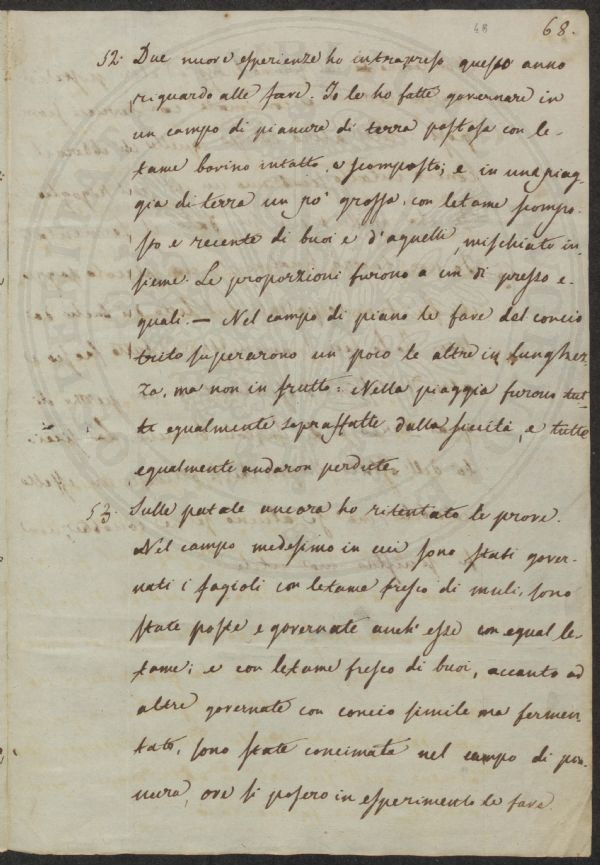 48 68.
52. Due nuove esperienze ho intrapreso questo anno
riguardo alle fave. Io le ho fatte governare in
un campo di pianure di terra pastosa con le-
tame bovino intatto, e scomposto; e in una piag-
gia di terra un po' grossa, con letame scompo-
sto e recente di buoi e d'agnelli, mischiato in-
sieme. Le proporzioni furono a un di presso e-
quali. — Nel campo di piano le fave del concio
trito superarono un poco le altre in lunghez-
za, ma non in frutto: Nella piaggia furono tut-
te egualmente sopraffatte dalla siccità, e tutte
egualmente andaron perdute.
53. Sulle patate ancora ho ritentato le prove.
Nel campo medesimo in cui sono stati gover-
nati i fagioli con letame fresco di muli, sono
state poste e governate anch' esse con egual le-
tame; e con letame fresco di buoi, accanto ad
altre governate con concio simile ma fermen-
tato, sono state concimate nel campo di pia-
nura, ove si posero in esperimento le fave.